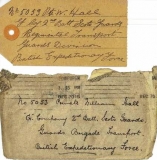 No 5033 Pte W. Hall
2nd Batt Scots Guards
Regimental Transport
Guards Division
British Expeditionary
Force
No 5033 Private William Hall
Company 2nd Batt. Scots Guards
Guards Brigade Transport.
British Expeditionary Force.